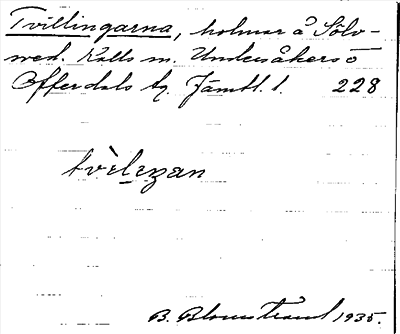 Tvillingarna, holmar å Sölv-
wed. Kalls m. Undersåkers o
Offerdals tg Jämtl. l. 228
tvìlιŋan
B. Blomstrand 1935.